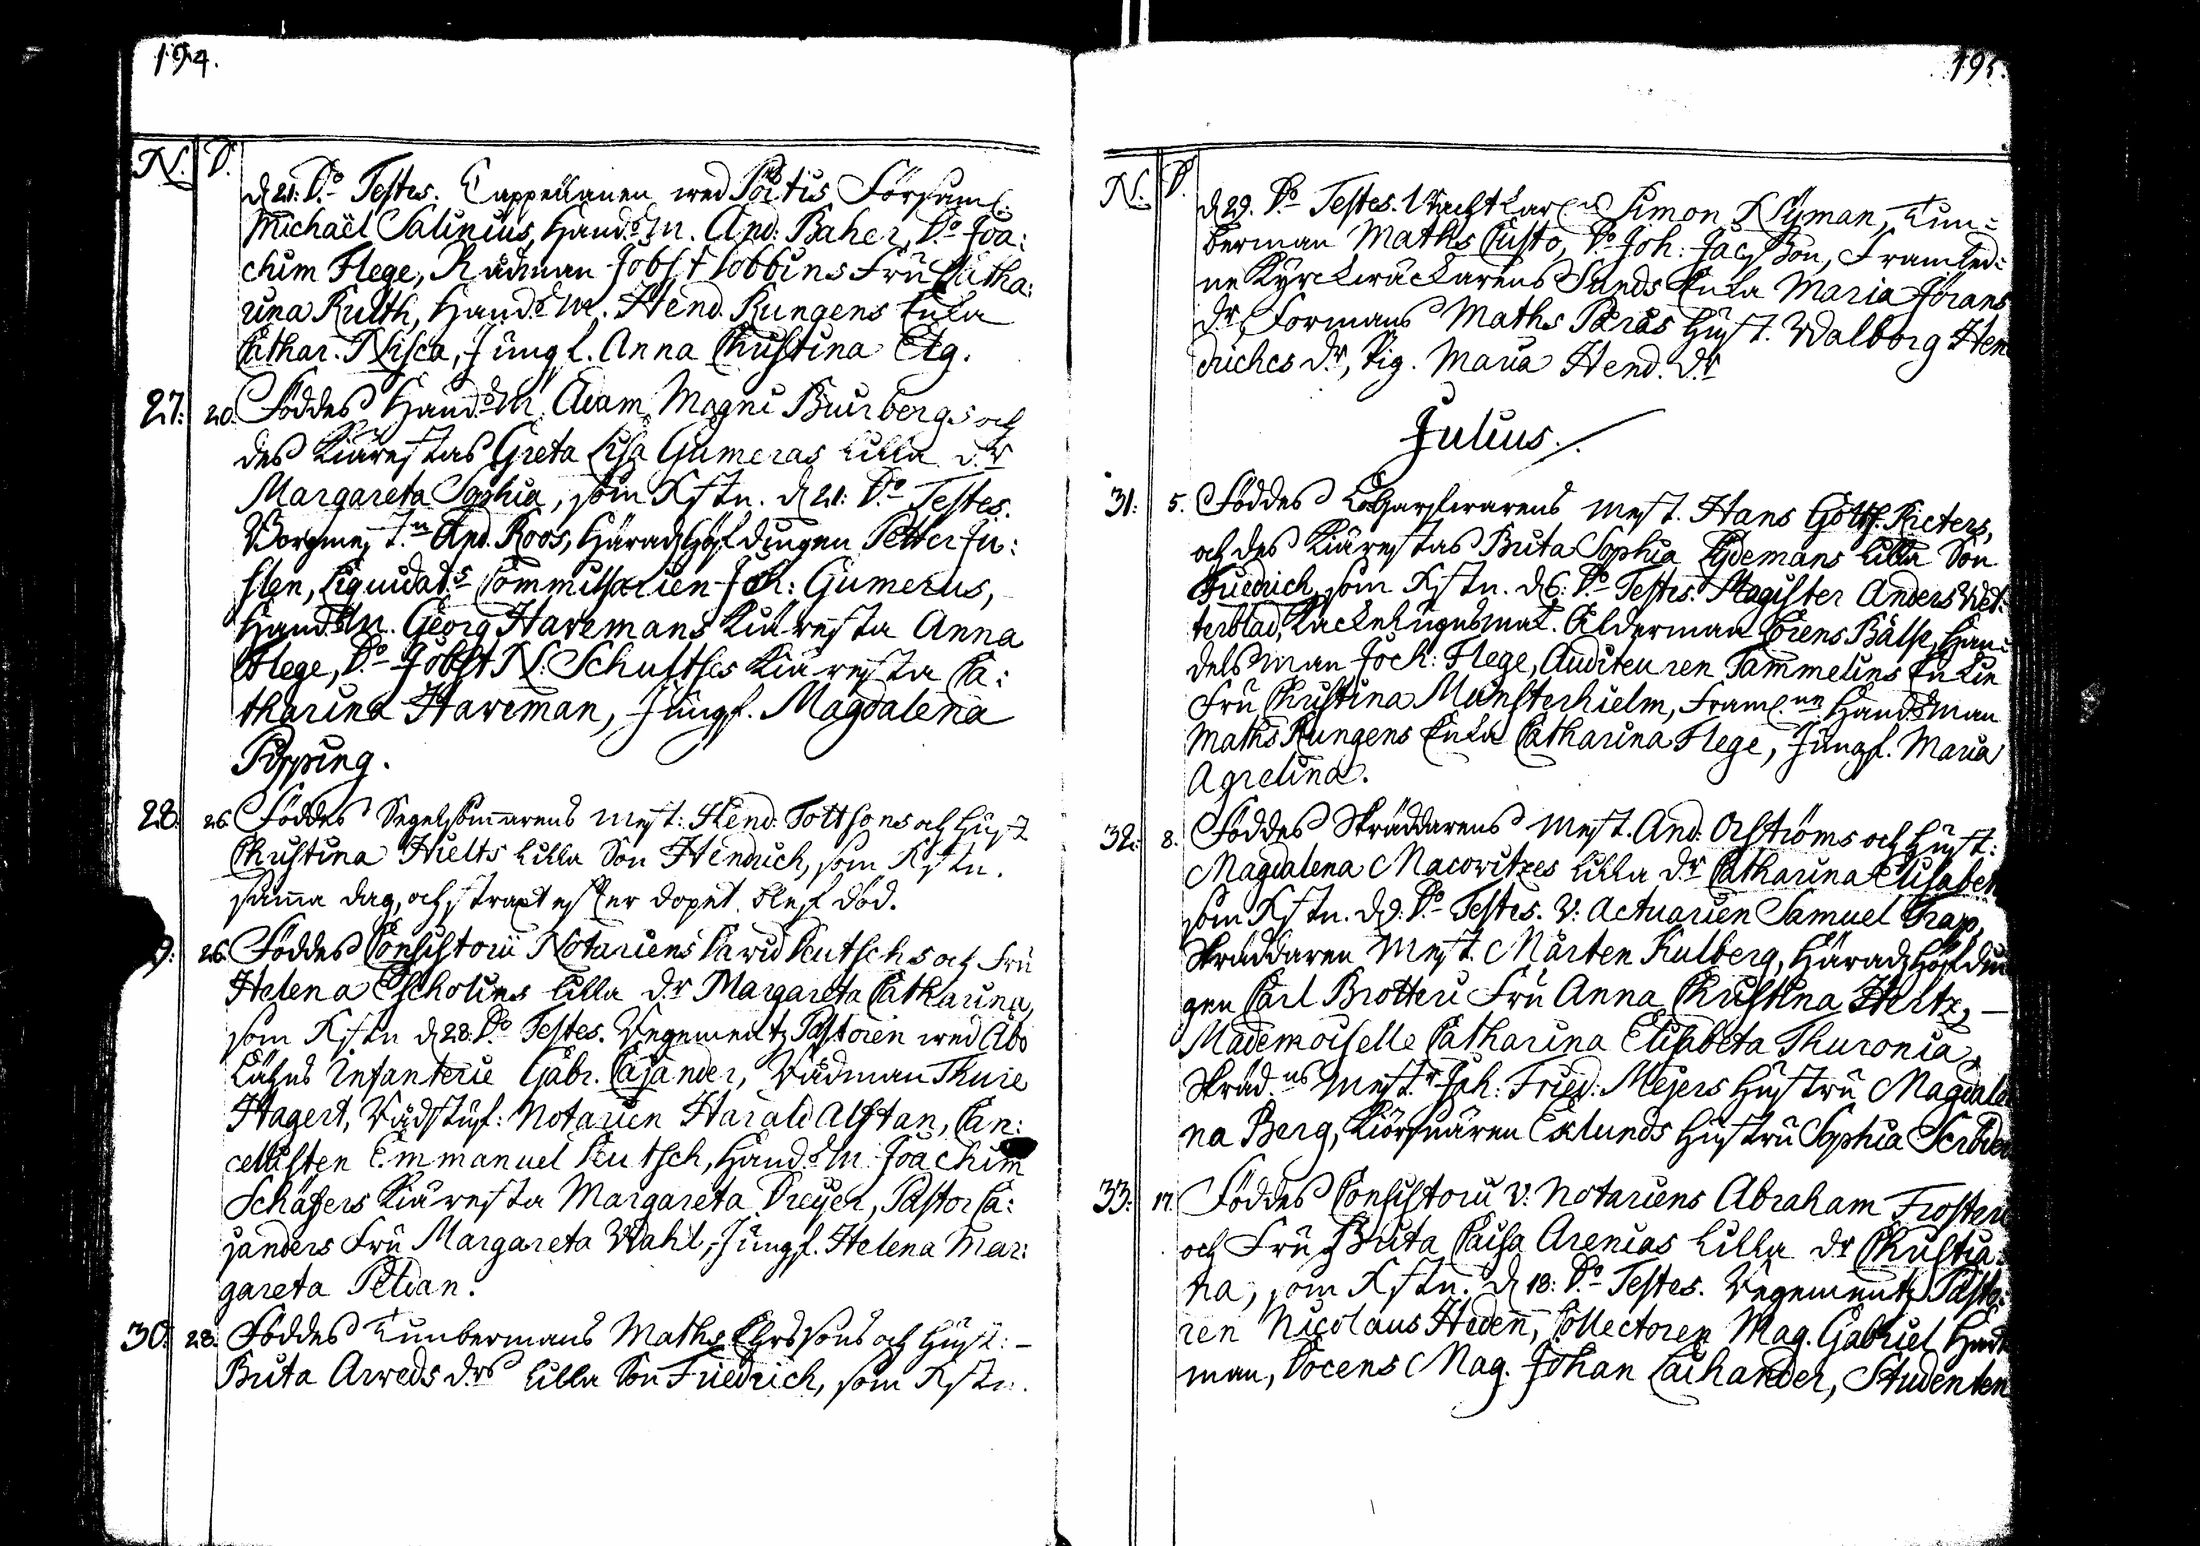 194.
N. D.
d 21: D:o Testes. Cappellanen wed Pöitis Församl.
Michaël Salinius, Hand:s M. And: Baher, D:o Joa:
chim Flege, Rådman Jobst Dobbins Fru Catha:
rina Ruth, Hand:s M. Hend. Rungens Enka
Cathar. Nisca, Jungf. Anna Christina Etg.
27: 20. Föddes Hand:s M. Adam Magni Burbergs och
des Kiärestas Greta Lisa Gumeras lilla d:r
Margareta Sophia, som Xstn. d 21: D:o Testes.
Borgmest:n And. Roos, Häradzhöfdingen Petter Ju:
slen, Liquidat:s Commissarien Joh: Gumerus,
Hand:s M. Georg Havemans Kiäresta Anna
Flege, D:o Jobst N: Schultses Kiäresta Ca:
tharina Haveman, Jungf. Magdalena
Pipping.
28. 26. Föddes Segelsömmarens Mest: Hend: Tottsons och Hust
Christina Hielts lilla Son Hendrich, som Xstn.
samma dag, och straxt efter dopet blef död.
9: 26. Föddes Consistorii Notariens David Deutschs och Fru
Helena Escholins lilla d:r Margareta Catharina,
som Xstn d 28. D:o Testes. Regementz Pastoren wed Åbo
Lähns Infanterie Gabr. Cajander, Rådman Thure
Hagert, Rådstuf: Notarien Harald Alftan, Can:
cellisten Emmanuel Deutsch, Hand:s M. Joachim
Schäfers Kiäresta Margareta Dreyer, Pastor Ca:
janders Fru Margareta Wahl, Jungf. Helena Mar:
gareta Petian.
30: 28. Föddes Timbermans Maths Ehrssons och Hust: –
Brita Arweds d:rs lilla Son Friedrich, som Xstn.
195.
N. D.
d 29. D:o Testes. Wachtkarlen Simon Nyman, Tim:
berman Maths Custo, D:o Joh: Jacsson, Framled:
ne Kyrckwäcktarens Sunds Enka Maria Jörans
d:r Formans Maths Pärus Hust. Walborg Hen
driches d:r, Pig. Maria Hend. d:r
Julius.
31: 5. Föddes Mest. Hans Gottf. Rieters,
och des Kiärestas Brita Sophia Lydemans lilla Son
Friedrich, som Xstn. d 6: D:o Testes. Magister Anders Wet:
terblad, Kackelugnsmak. Ålderman Lorens Bälse, Han:
delsman Joch: Flege, Auditeuren Tammelins Enkia
Fru Christina Munsterhielm, Framl:ne Hand:s man
Maths Rungens Enka Catharina Flege, Jungf. Maria
Agrelina.
32: 8. Föddes Skräddarens Mest. And: Åströms och Hust:
Magdalena Macowitzes lilla d:r Catharina Elisabet
som Xstn. d 9: D:o Testes. V: Actuarien Samuel Trapp,
Skräddaren Mest. Mårten Kulberg, Häradzhöfdin
gen Carl Brotteri Fru Anna Christina Hertz, –
Mademoiselle Catharina Elisabeta Thuronia,
Skräd:ns Mest:r Joh: Fried: Mejers Hustru Magdale
na Berg, Körsnären Eklunds Hustru Sophia
33: 17. Föddes Consistorii V: Notariens Abraham Frosteri
och Fru Brita Caisa Arenias lilla d:r Christia:
na, som Xstn. d 18: D:o Testes. Regementz Pasto:
ren Nicolaus Hedenn, Collectoren Mag. Gabriel Hart
man, Docens Mag. Johan Laihander, Studenten